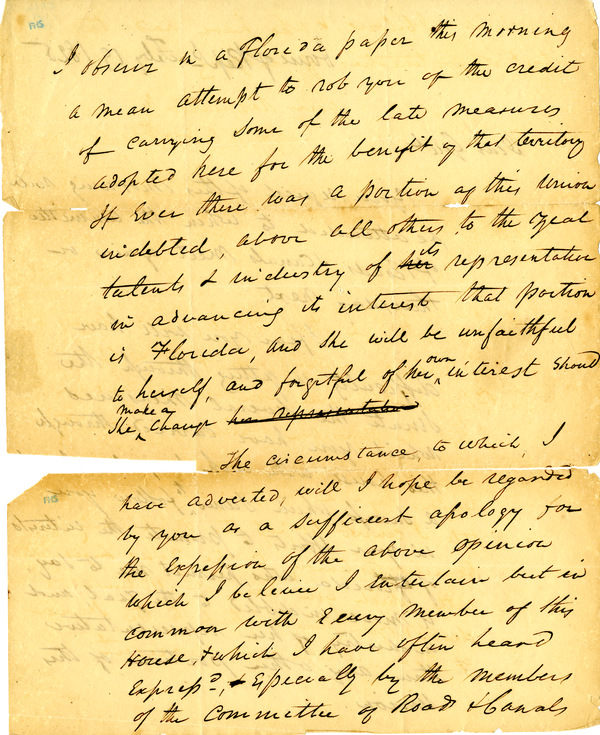 I observe in a Florida paper this morning
a mean attempt to rob you of the credit
of carrying some of the late measures
adopted here for the benefit of that territory
If Ever there was a portion of this Union
indebted, above all others to the zeal
talents & industry of her its representative
in advancing its interest that portion
is Florida, and she will be unfaithful
to herself, and forgetful of her own interest should
She make a change her representative
The circumstance, to which, I
have adverted, will I hope be regarded
by you as a sufficient apology for
the Expression of the above opinion
which I beleive I Entertain but in
common with Every Member of this
House, & which I have often heard
Express^d, & Especially by the members
of the Committee of Roads & Canals